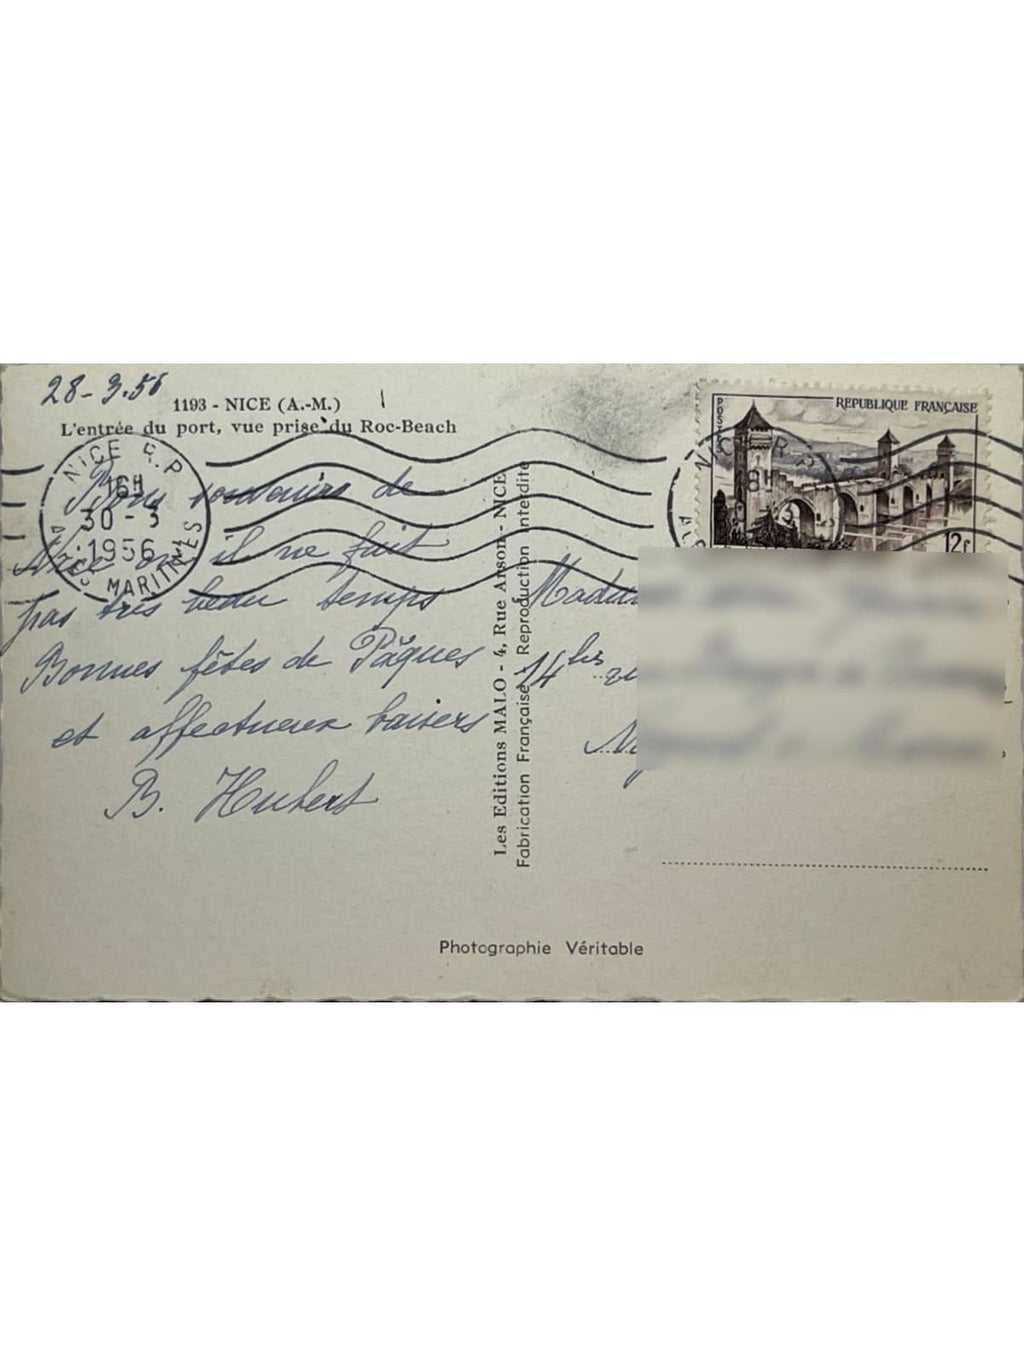 28-3.56
1193 - NICE (A.-M.)
L'entrée du port, vue prise du Roc-Beach
NICE R.P
16H
30 - 3
1956
MARITIMES
Bons souvenirs de
Nice où il ne fait
pas très beau temps
Bonnes fêtes de Pâques
et affectueux baisers
B. Hubert
Les Editions MALO - 4, Rue Anson - NICE
Fabrication Française - Reproduction Interdite
POSTES
REPUBLIQUE FRANÇAISE
12f
NICE R.P
18H
14 bis
Photographie Véritable